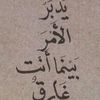 يدبّر
الأمرَ
بَينَمَا أنت
غَارِقٌ